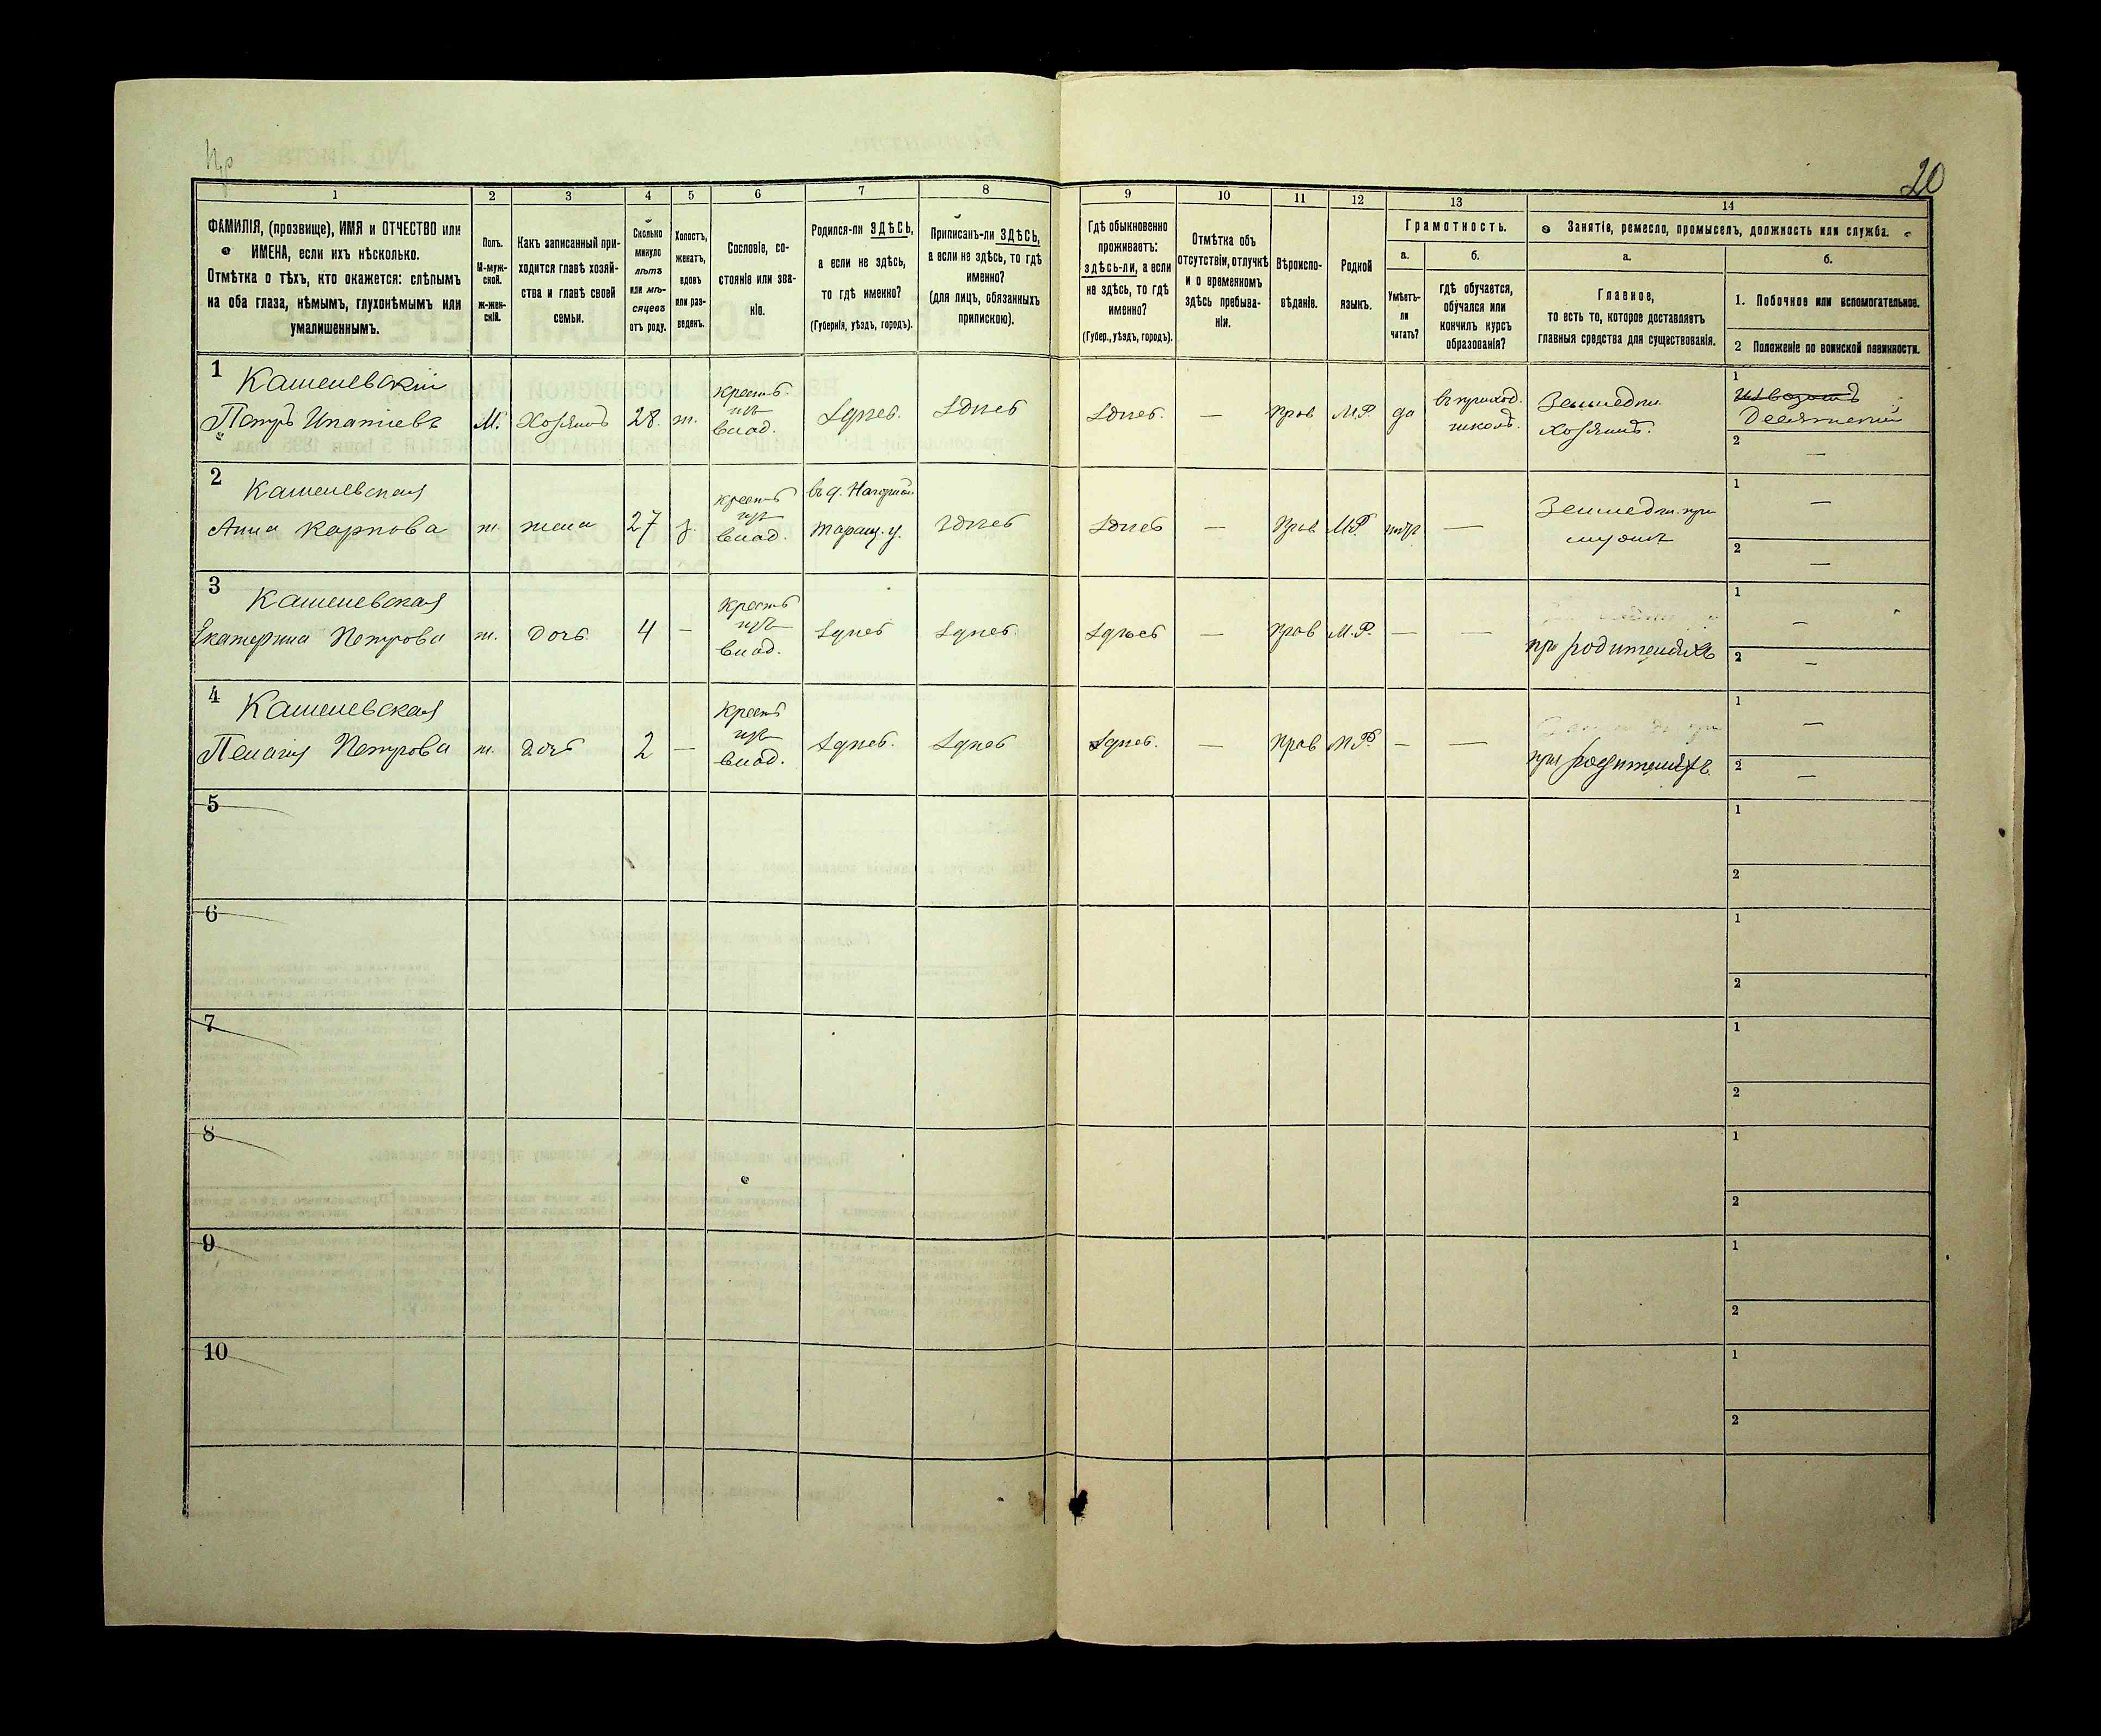 20
1
2
3
4
5
6
7
8
9
10
11
12
13
14
ФАМИЛІЯ, (прозвище), ИМЯ и ОТЧЕСТВО или
ИМЕНА, если ихъ нѣсколько.
Отмѣтка о тѣхъ, кто окажется: слѣпымъ
на оба глаза, нѣмымъ, глухонѣмымъ или
умалишеннымъ.
Полъ.
М-муж-
ской.
Ж-жен-
скій.
Какъ записанный при-
ходится главѣ хозяй-
ства и главѣ своей
семьи.
Сколько
минуло
лѣтъ
или мѣ-
сяцевъ
отъ роду.
Холостъ,
женатъ,
вдовъ
или раз-
веденъ.
Сословіе, со-
стояніе или зва-
ніе.
Родился-ли ЗДѢСЬ,
а если не здѣсь,
то гдѣ именно?
(Губернія, уѣздъ, городъ).
Приписанъ-ли ЗДѢСЬ,
а если не здѣсь, то гдѣ
именно?
(для лицъ, обязанныхъ
припискою).
Гдѣ обыкновенно
проживаетъ:
здѣсь-ли, а если
не здѣсь, то гдѣ
именно?
(Губер., уѣздъ, городъ).
Отмѣтка объ
отсутствіи, отлучкѣ
и о временномъ
здѣсь пребыва-
ніи.
Вѣроиспо-
вѣданіе.
Родной
языкъ.
Грамотность.
а.
Умѣетъ-
ли
читать?
б.
гдѣ обучается,
обучался или
кончилъ курсъ
образованія?
Занятіе, ремесло, промыселъ, должность или служба.
а.
Главное,
то есть то, которое доставляетъ
главныя средства для существованія.
б.
1. Побочное или вспомогательное.
2 Положеніе по воинской повинности.
1
Кашевскій
Петръ Ипатіевъ
М.
Хозяинъ
28.
ж.
Крестъ.
изъ
влад.
Здѣсь.
Здѣсь
Здѣсь
—
Прав
М.Р.
да
въ приход.
школѣ.
Земледѣл.
хозяинъ.
1
Десятскій
2
—
2
Кашевская
Анна Карпова
ж.
жена
27
з.
Крестъ
изъ
влад.
въ д. Нагорной
Таращ. у.
Здѣсь
Здѣсь
—
Прав
М.Р
нѣтъ
—
Земледѣл. при
мужѣ
1
—
2
—
3
Кашевская
Екатерина Петрова
ж.
дочь
4
—
Крестъ
изъ
влад.
Здѣсь
Здѣсь.
Здѣсь
—
Прав
М.Р.
—
—
при родителяхъ
1
—
2
—
4
Кашевская
Пелагія Петрова
ж.
дочь
2
—
Крестъ
изъ
влад.
Здѣсь.
Здѣсь
Здѣсь.
—
Прав
М.Р
—
—
при родителяхъ
1
—
2
—
5
1
2
6
1
2
7
1
2
8
1
2
9
1
2
10
1
2